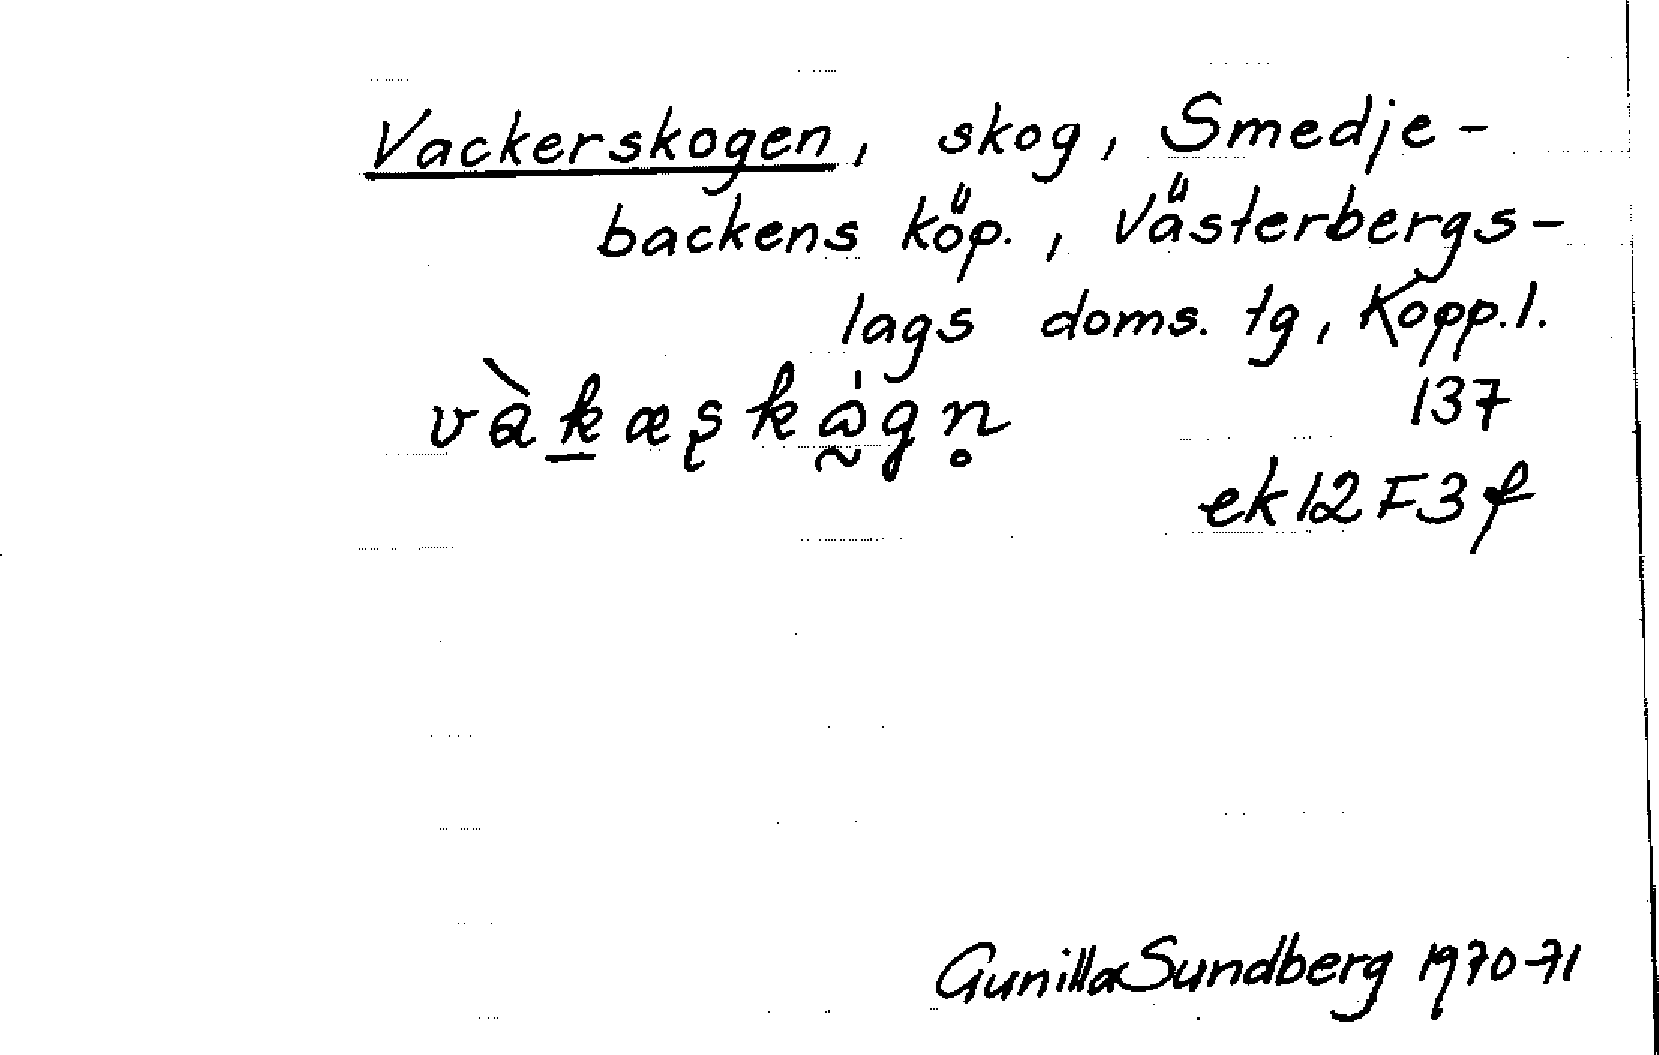 Vackerskogen, skog, Smedje-
backens köp., Västerbergs-
lags doms. tg, Kopp.l.
137
ek 12 F 3 f
Gunilla Sundberg 1970-71